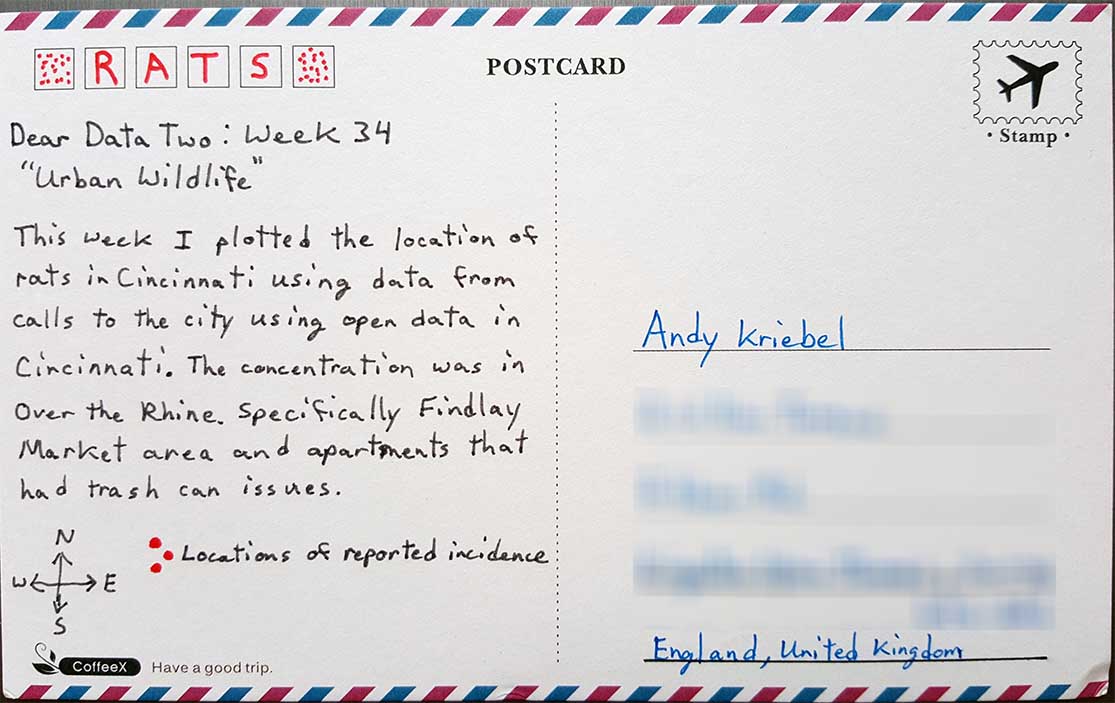 RATS
POSTCARD
Stamp
Dear Data Two: Week 34
"Urban Wildlife"
This week I plotted the location of
rats in Cincinnati using data from
calls to the city using open data in
Cincinnati. The concentration was in
Over the Rhine. Specifically Findlay
Market area and apartments that
had trash can issues.
N
W E
S
Locations of reported incidence
CoffeeX Have a good trip.
Andy Kriebel
England, United Kingdom